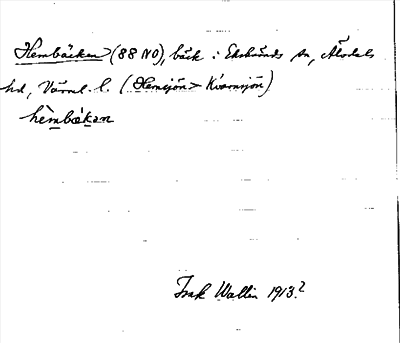 Hembäcken (88 NO), bäck i Ekshärads sn, Älvdals
hd, Värml. l. (Hemsjön > Kvarnsjön)
hèmbäkən
Isak Wallin 1913?